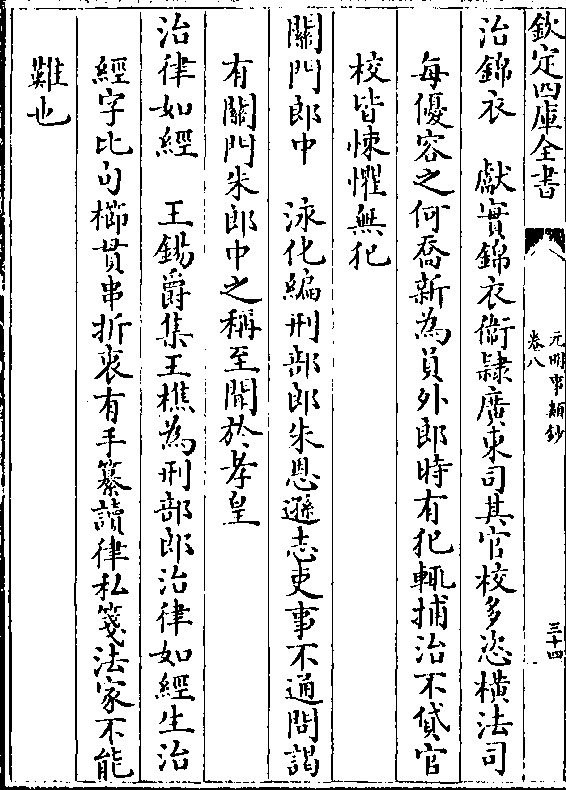 欽定四庫全書
元明事類鈔
卷八
三十四
治錦衣　獻實錦衣衛隸廣東司其官校多恣橫法司
每優容之何喬新為員外郎時有犯輒捕治不貸官
校皆悚懼無犯
關門郎中　泳化編刑部郎朱恩遜志吏事不通問謁
有關門朱郎中之稱至聞於孝皇
治律如經　王錫爵集王樵為刑部郎治律如經生治
經字比句櫛貫串折衷有手纂讀律私箋法家不能
難也